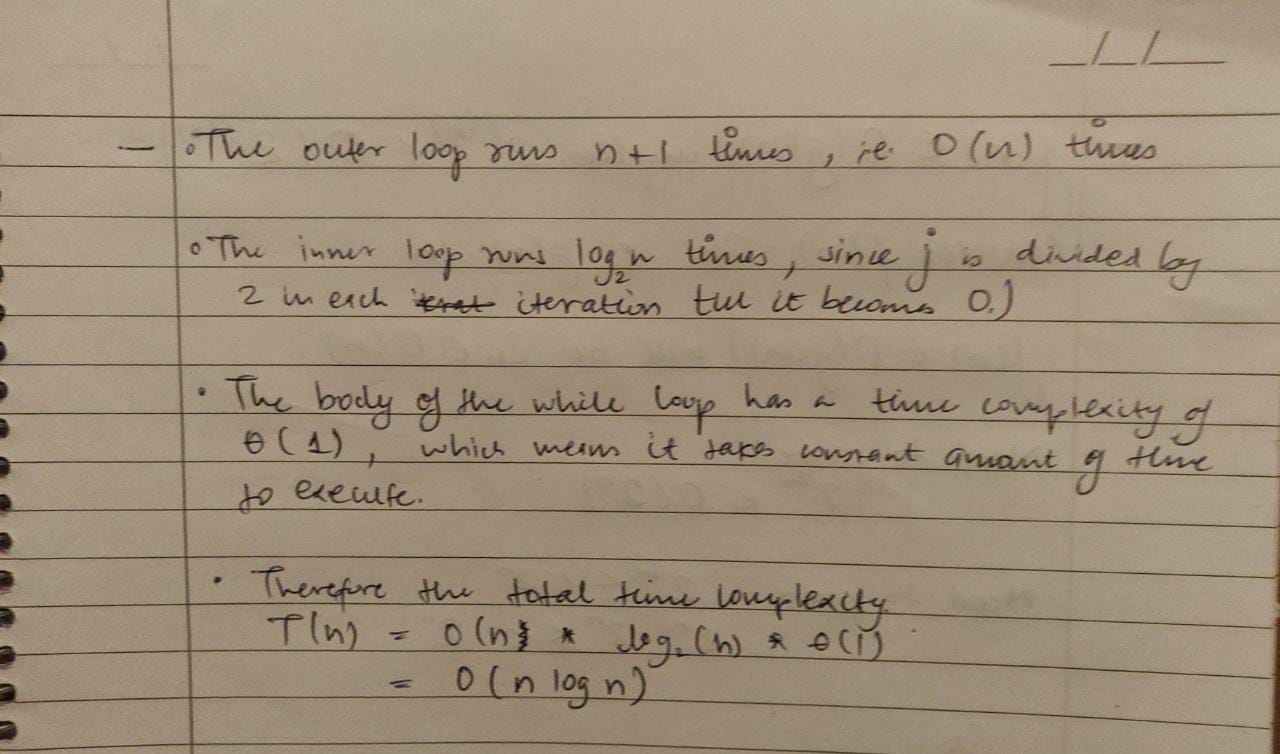 _/_/__
— ∘ The outer loop runs n+1 times, ie. O(n) times
∘ The inner loop runs log₂n times, since j is divided by
2 in each iteration till it becomes 0.)
• The body of the while loop has a time complexity of
θ(1), which means it takes constant amount of time
to execute.
• Therefore the total time complexity.
T(n) = O(n) * log₂(n) * θ(1)
= O(n log n)